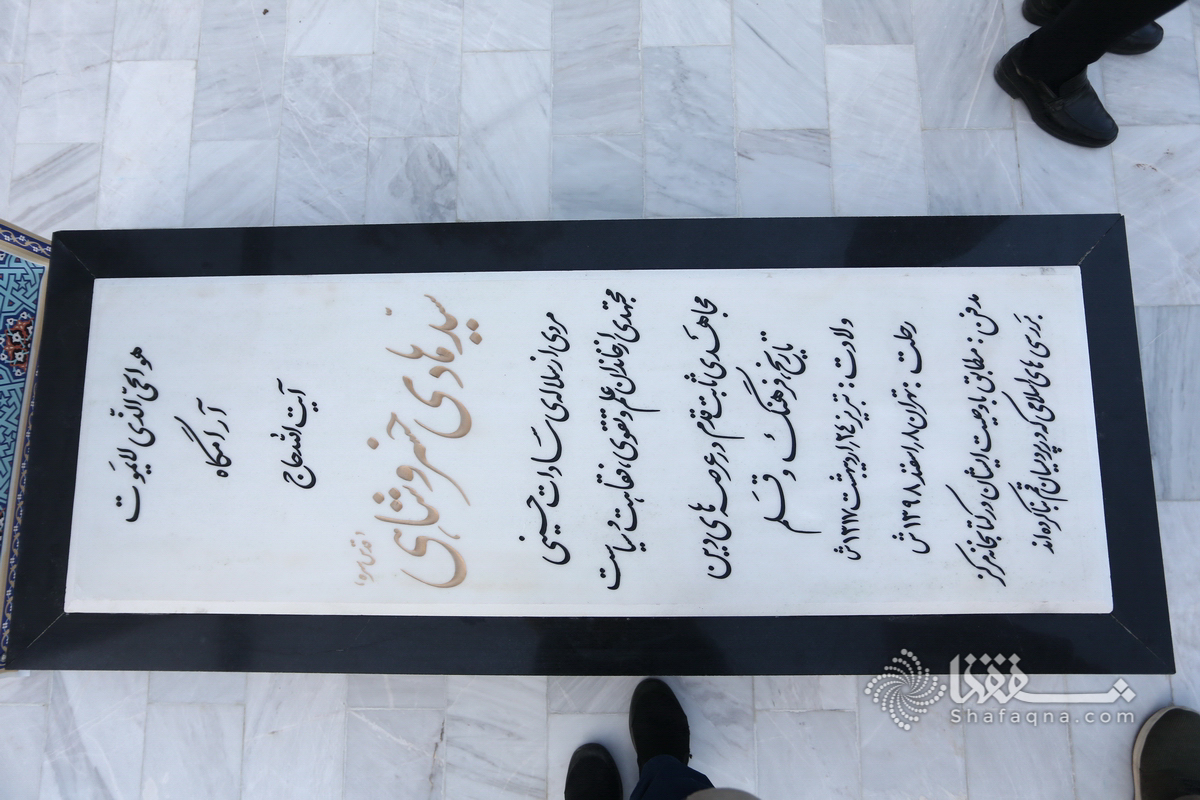 هو الحیّ الّذی لایموت
آرامگاه
آیت الله حاج
سیّد هادی خسروشاهی
(قدس سره)
مردی از سلاله‌ی سادات حسینی
مجتهدی از خاندان علم و تقوی، فقاهت و سیاست
مجاهدی ثابت قدم در عرصه های دین
تاریخ، فرهنگ و قلم
ولادت: تبریز ۲۴ اردیبهشت ۱۳۱۷ ش
رحلت: تهران ۸ اسفند ۱۳۹۸ ش
مدفن: مطابق با وصیت ایشان در کتابخانه مرکز
بررسی های اسلامی که در پردیسان قم بنا کرده اند
شفقنا
Shafaqna.com